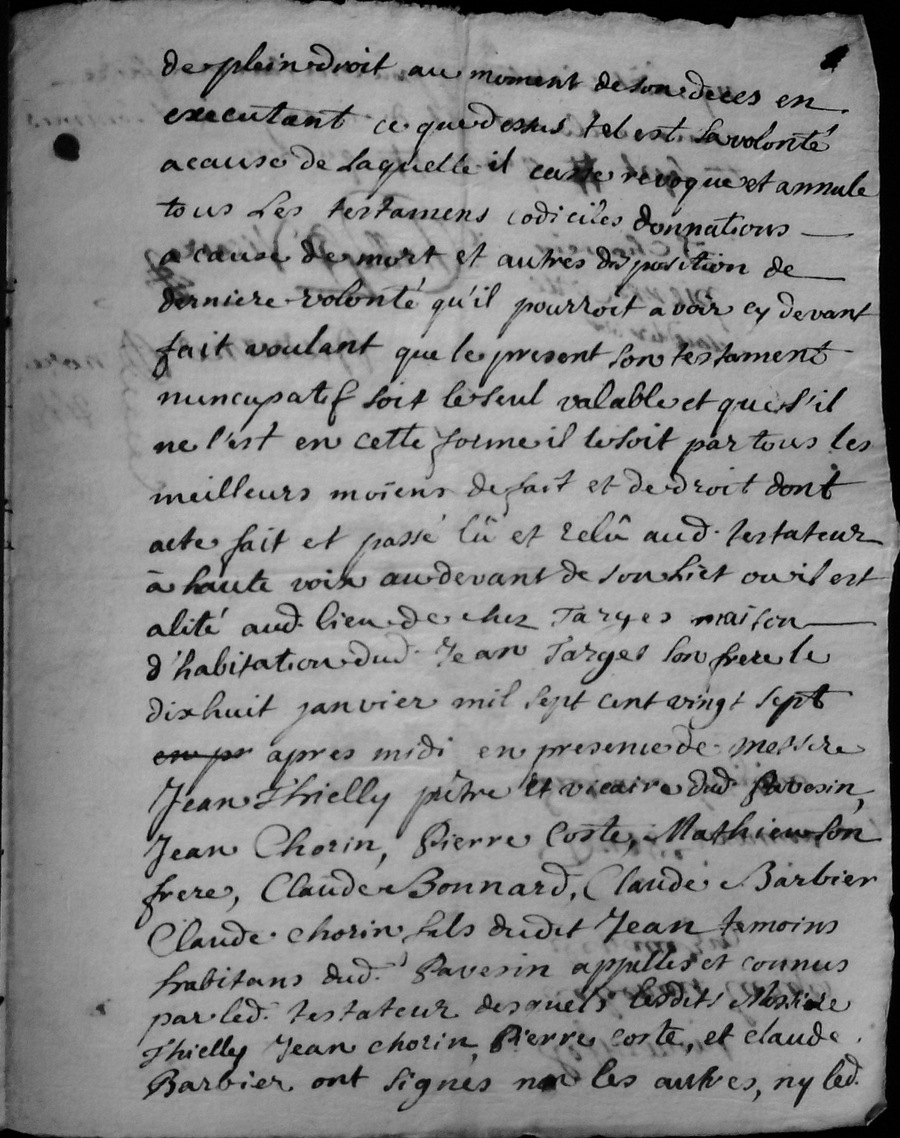 de plein droit au moment de son deces en
executant ce que dessus tel est sa volonté
a cause de laquelle il casse revoque et annule
tous les testamens codiciles donnations
a cause de mort et autres disposition de
derniere volonté qu'il pourroit avoir cy devant
fait voulant que le present son testament
nuncupatif soit le seul valable et que s'il
ne l'est en cette forme il le soit par tous les
meilleurs moïens de fait et de droit dont
acte fait et passé lû et relû aud. testateur
à haute voix au devant de son liet ou il est
alité aud. lieu de chez Targes maison
d'habitation dud. Jean Targes son frere le
dix huit janvier mil sept cent vingt sept
en pr apres midi en presence de messire
Jean Thielly prêtre et vicaire dud. Pavesin,
Jean Chorin, Pierre Coste, Mathieu son
frere, Claude Bonnard, Claude Barbier
Claude chorin fils dudit Jean temoins
habitans dud. Pavesin appellés et connus
par led. testateur desquels lesdits Messire
Thielly Jean chorin, Pierre coste, et claude
Barbier ont signés non les autres, ny led.